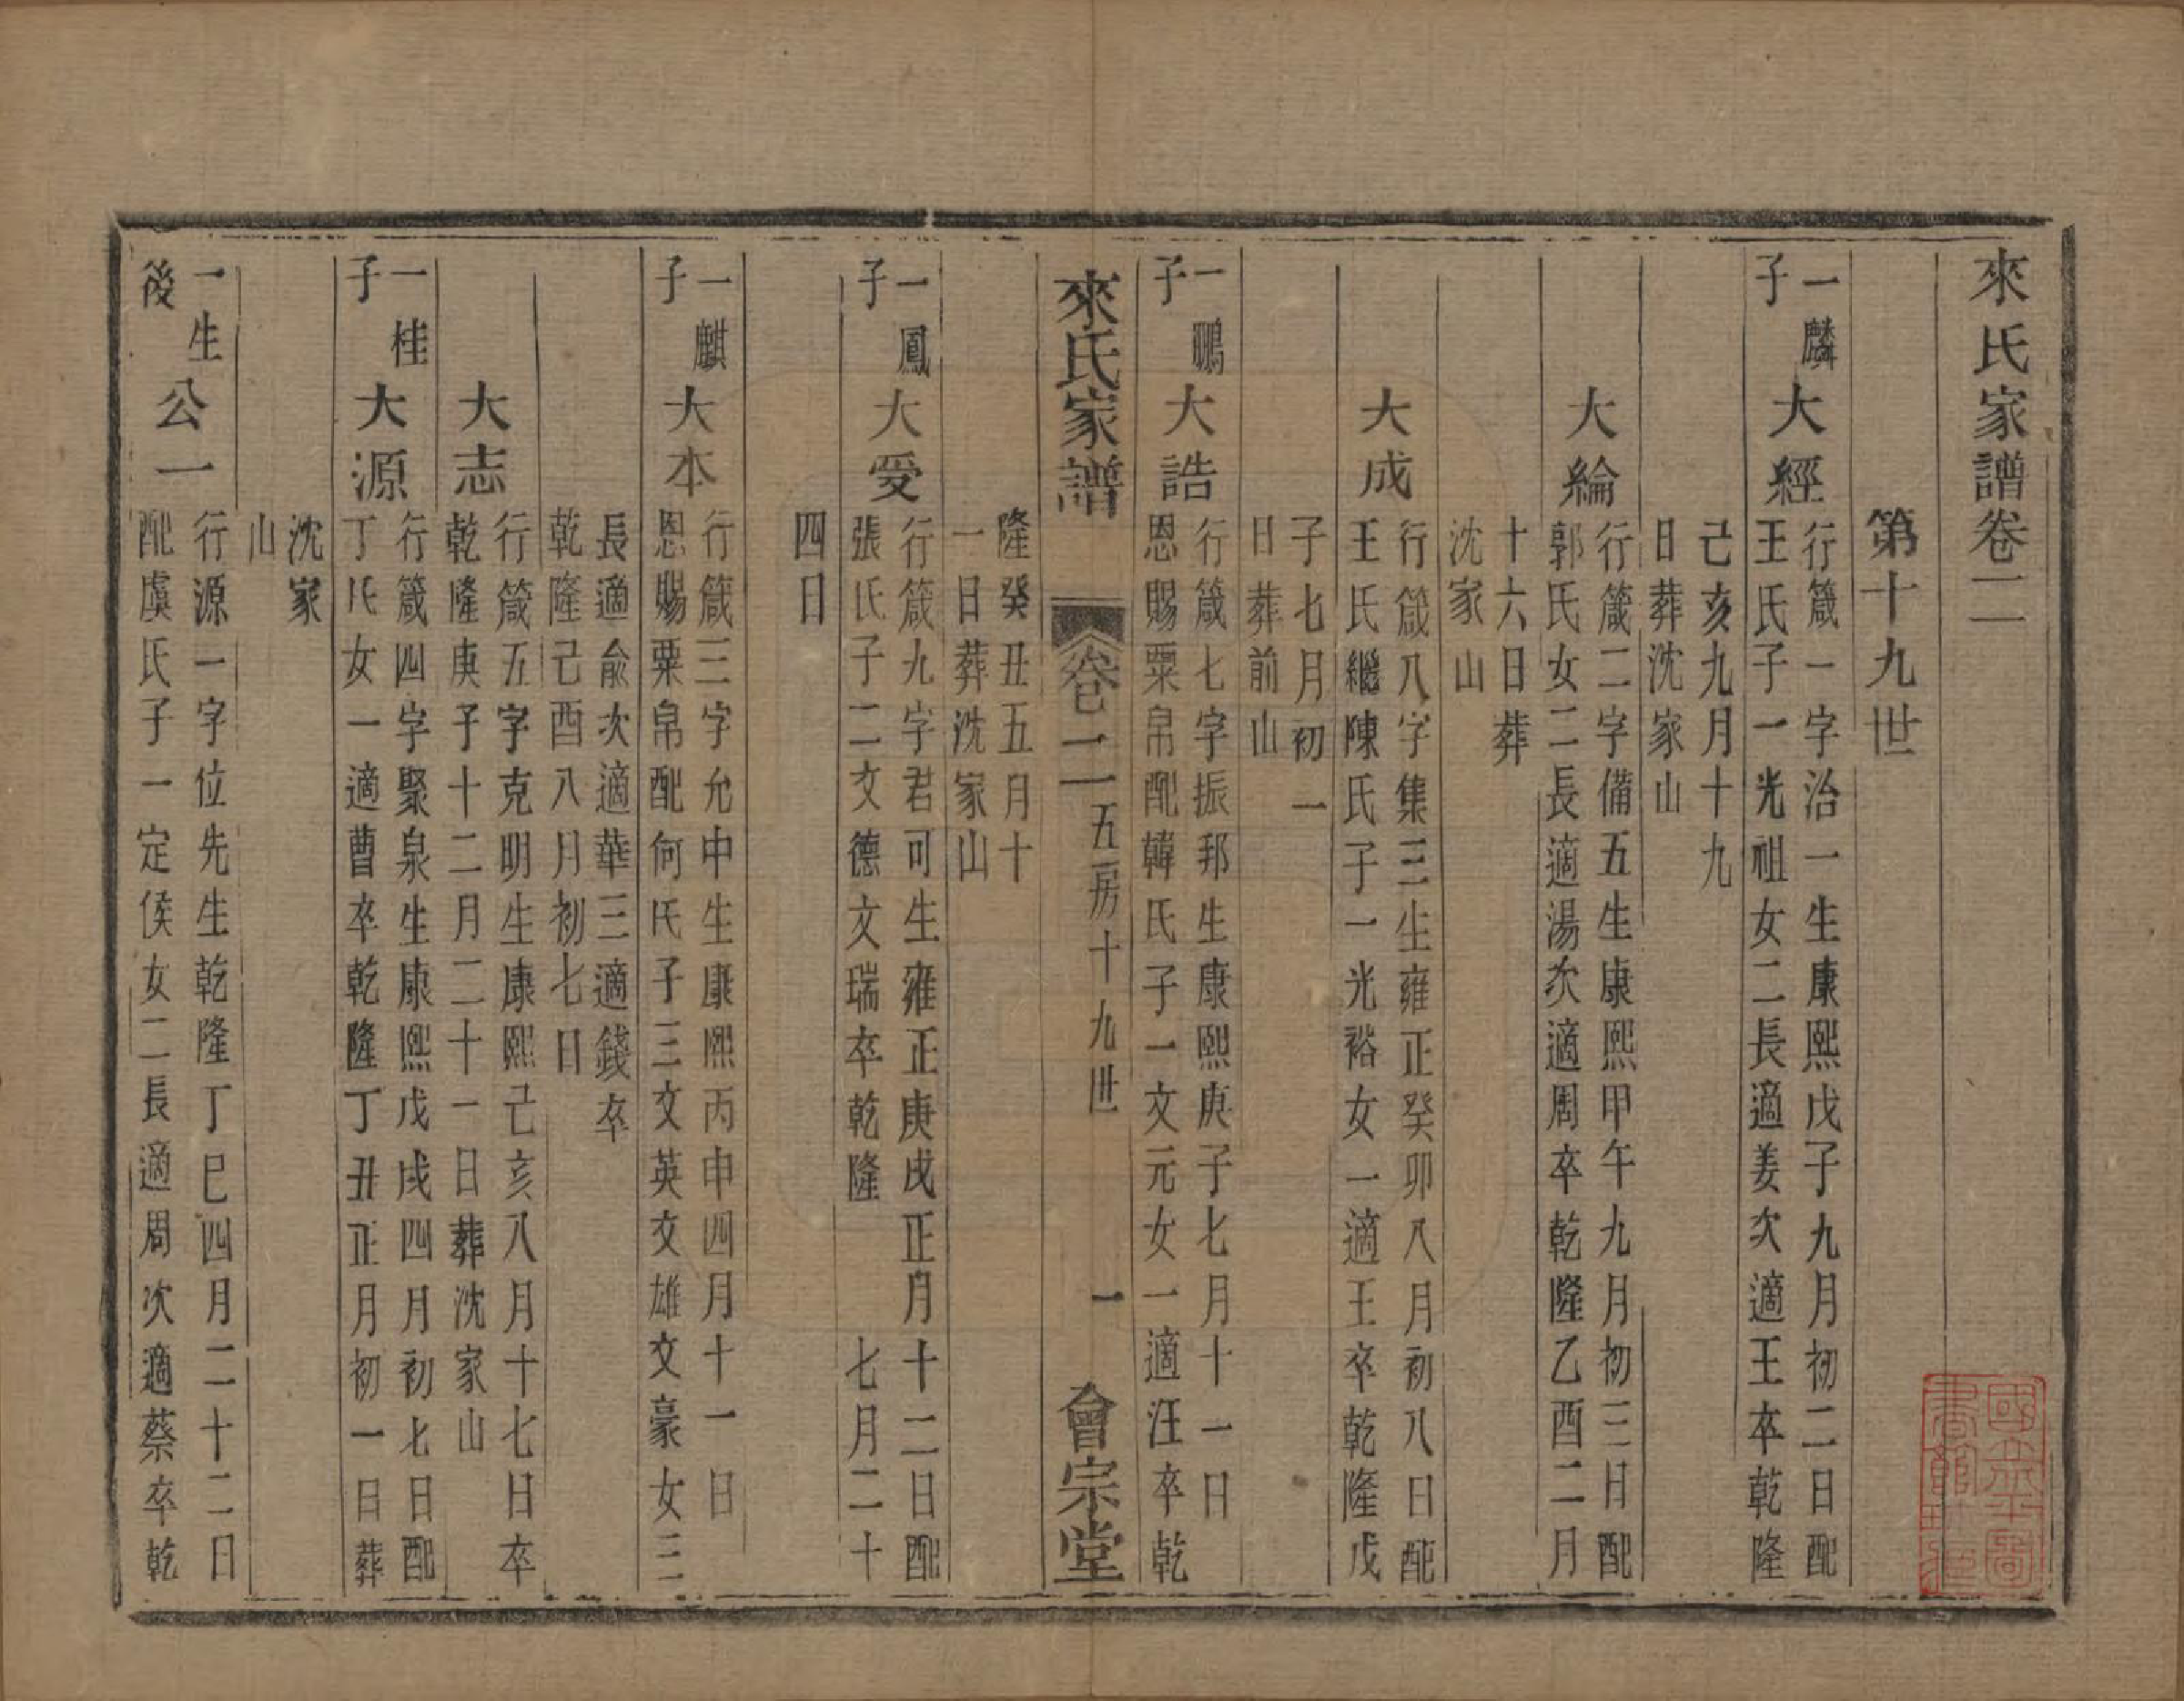 來氏家譜卷二
第十九世
一麟子
大經
行箴一字治一生康熙戊子九月初二日配
王氏子一光祖女二長適姜次適王卒乾隆
己亥九月十九
日葬沈家山
大綸
行箴二字備五生康熙甲午九月初三日配
郭氏女二長適湯次適周卒乾隆乙酉二月
十六日葬
沈家山
大成
行箴八字集三生雍正癸卯八月初八日配
王氏繼陳氏子一光裕女一適王卒乾隆戊
子七月初一
日葬前山
一鵬子
大誥
行箴七字振邦生康熙庚子七月十一日
恩賜粟帛配韓氏子一文元女一適汪卒乾
來氏家譜
卷二
五房十九世
一
會宗堂
隆癸丑五月十
一日葬沈家山
一鳳子
大受
行箴九字君可生雍正庚戌正月十二日配
張氏子二文德文瑞卒乾隆 七月二十
四日
一麒子
大本
行箴三字允中生康熙丙申四月十一日
恩賜粟帛配何氏子三文英文雄文豪女三
長適俞次適華三適錢卒
乾隆己酉八月初七日
大志
行箴五字克明生康熙己亥八月十七日卒
乾隆庚子十二月二十一日葬沈家山
一桂子
大源
行箴四字聚泉生康熙戊戌四月初七日配
丁氏女一適曹卒乾隆丁丑正月初一日葬
沈家
山
一生後
公一
行源一字位先生乾隆丁巳四月二十二日
配虞氏子一定侯女二長適周次適蔡卒乾
國立北平圖
書館收藏